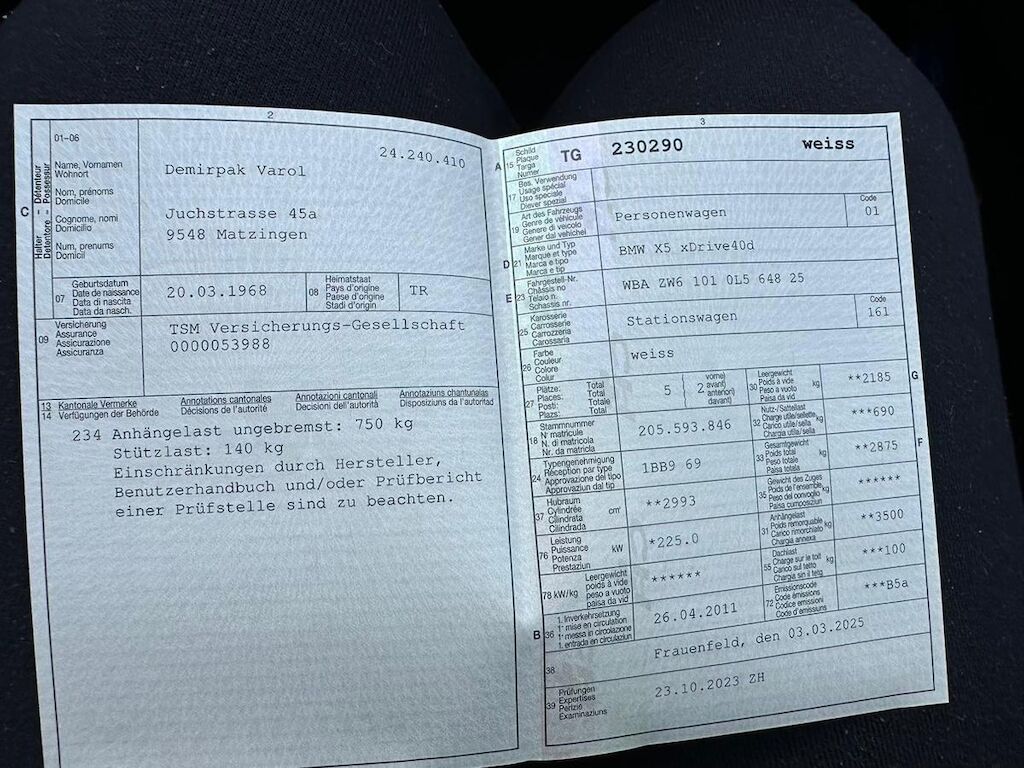 2
01-06
24.240.410
C
Halter – Détenteur
Detentore – Possessur
Name, Vornamen
Wohnort
Nom, prénoms
Domicile
Cognome, nomi
Domicilio
Num, prenums
Domicil
Demirpak Varol
Juchstrasse 45a
9548 Matzingen
07
Geburtsdatum
Date de naissance
Data di nascita
Data da nasch.
20.03.1968
08
Heimatstaat
Pays d'origine
Paese d'origine
Stadi d'origin
TR
09
Versicherung
Assurance
Assicurazione
Assicuranza
TSM Versicherungs-Gesellschaft
0000053988
13 Kantonale Vermerke Annotations cantonales Annotazioni cantonali Annotaziuns chantunalas
14 Verfügungen der Behörde Décisions de l'autorité Decisioni dell'autorità Disposiziuns da l'autoritad
234 Anhängelast ungebremst: 750 kg
Stützlast: 140 kg
Einschränkungen durch Hersteller,
Benutzerhandbuch und/oder Prüfbericht
einer Prüfstelle sind zu beachten.
3
A 15
Schild
Plaque
Targa
Numer
TG 230290 weiss
17
Bes. Verwendung
Usage spécial
Uso speciale
Diever spezial
19
Art des Fahrzeugs
Genre de véhicule
Genere di veicolo
Gener dal vehichel
Personenwagen
Code
01
D 21
Marke und Typ
Marque et type
Marca e tipo
Marca e tip
BMW X5 xDrive40d
E 23
Fahrgestell-Nr.
Châssis no
Telaio n.
Schassis nr.
WBA ZW6 101 0L5 648 25
25
Karosserie
Carrosserie
Carrozzeria
Carossaria
Stationswagen
Code
161
26
Farbe
Couleur
Colore
Colur
weiss
27
Plätze: Total
Places: Total
Posti: Totale
Plazs: Total
5
2
vorne)
avant)
anteriori)
davant)
30
Leergewicht
Poids à vide
Peso a vuoto
Paisa da vid
kg
**2185
G
18
Stammnummer
N° matricule
N. di matricola
Nr. da matricla
205.593.846
32
Nutz-/Sattellast
Charge utile/sellette
Carico utile/sella
Chargia utila/sella
kg
***690
24
Typengenehmigung
Réception par type
Approvazione del tipo
Approvaziun dal tip
1BB9 69
33
Gesamtgewicht
Poids total
Peso totale
Paisa totala
kg
**2875
F
37
Hubraum
Cylindrée
Cilindrata
Cilindrada
cm³
**2993
35
Gewicht des Zuges
Poids de l'ensemble
Peso del convoglio
Paisa cumposiziun
kg
******
76
Leistung
Puissance
Potenza
Prestaziun
kW
*225.0
31
Anhängelast
Poids remorquable
Carico rimorchiato
Chargia annexa
kg
**3500
78 kW/kg
Leergewicht
poids à vide
peso a vuoto
paisa da vid
******
55
Dachlast
Charge sur le toit
Carico sul tetto
Chargia sin il tetg
kg
***100
B 36
1. Inverkehrsetzung
1re mise en circulation
1a messa in circolazione
1. entrada en circulaziun
26.04.2011
72
Emissionscode
Code émissions
Codice emissioni
Code d'emissiuns
***B5a
38
Frauenfeld, den 03.03.2025
39
Prüfungen
Expertises
Perizie
Examinaziuns
23.10.2023 ZH